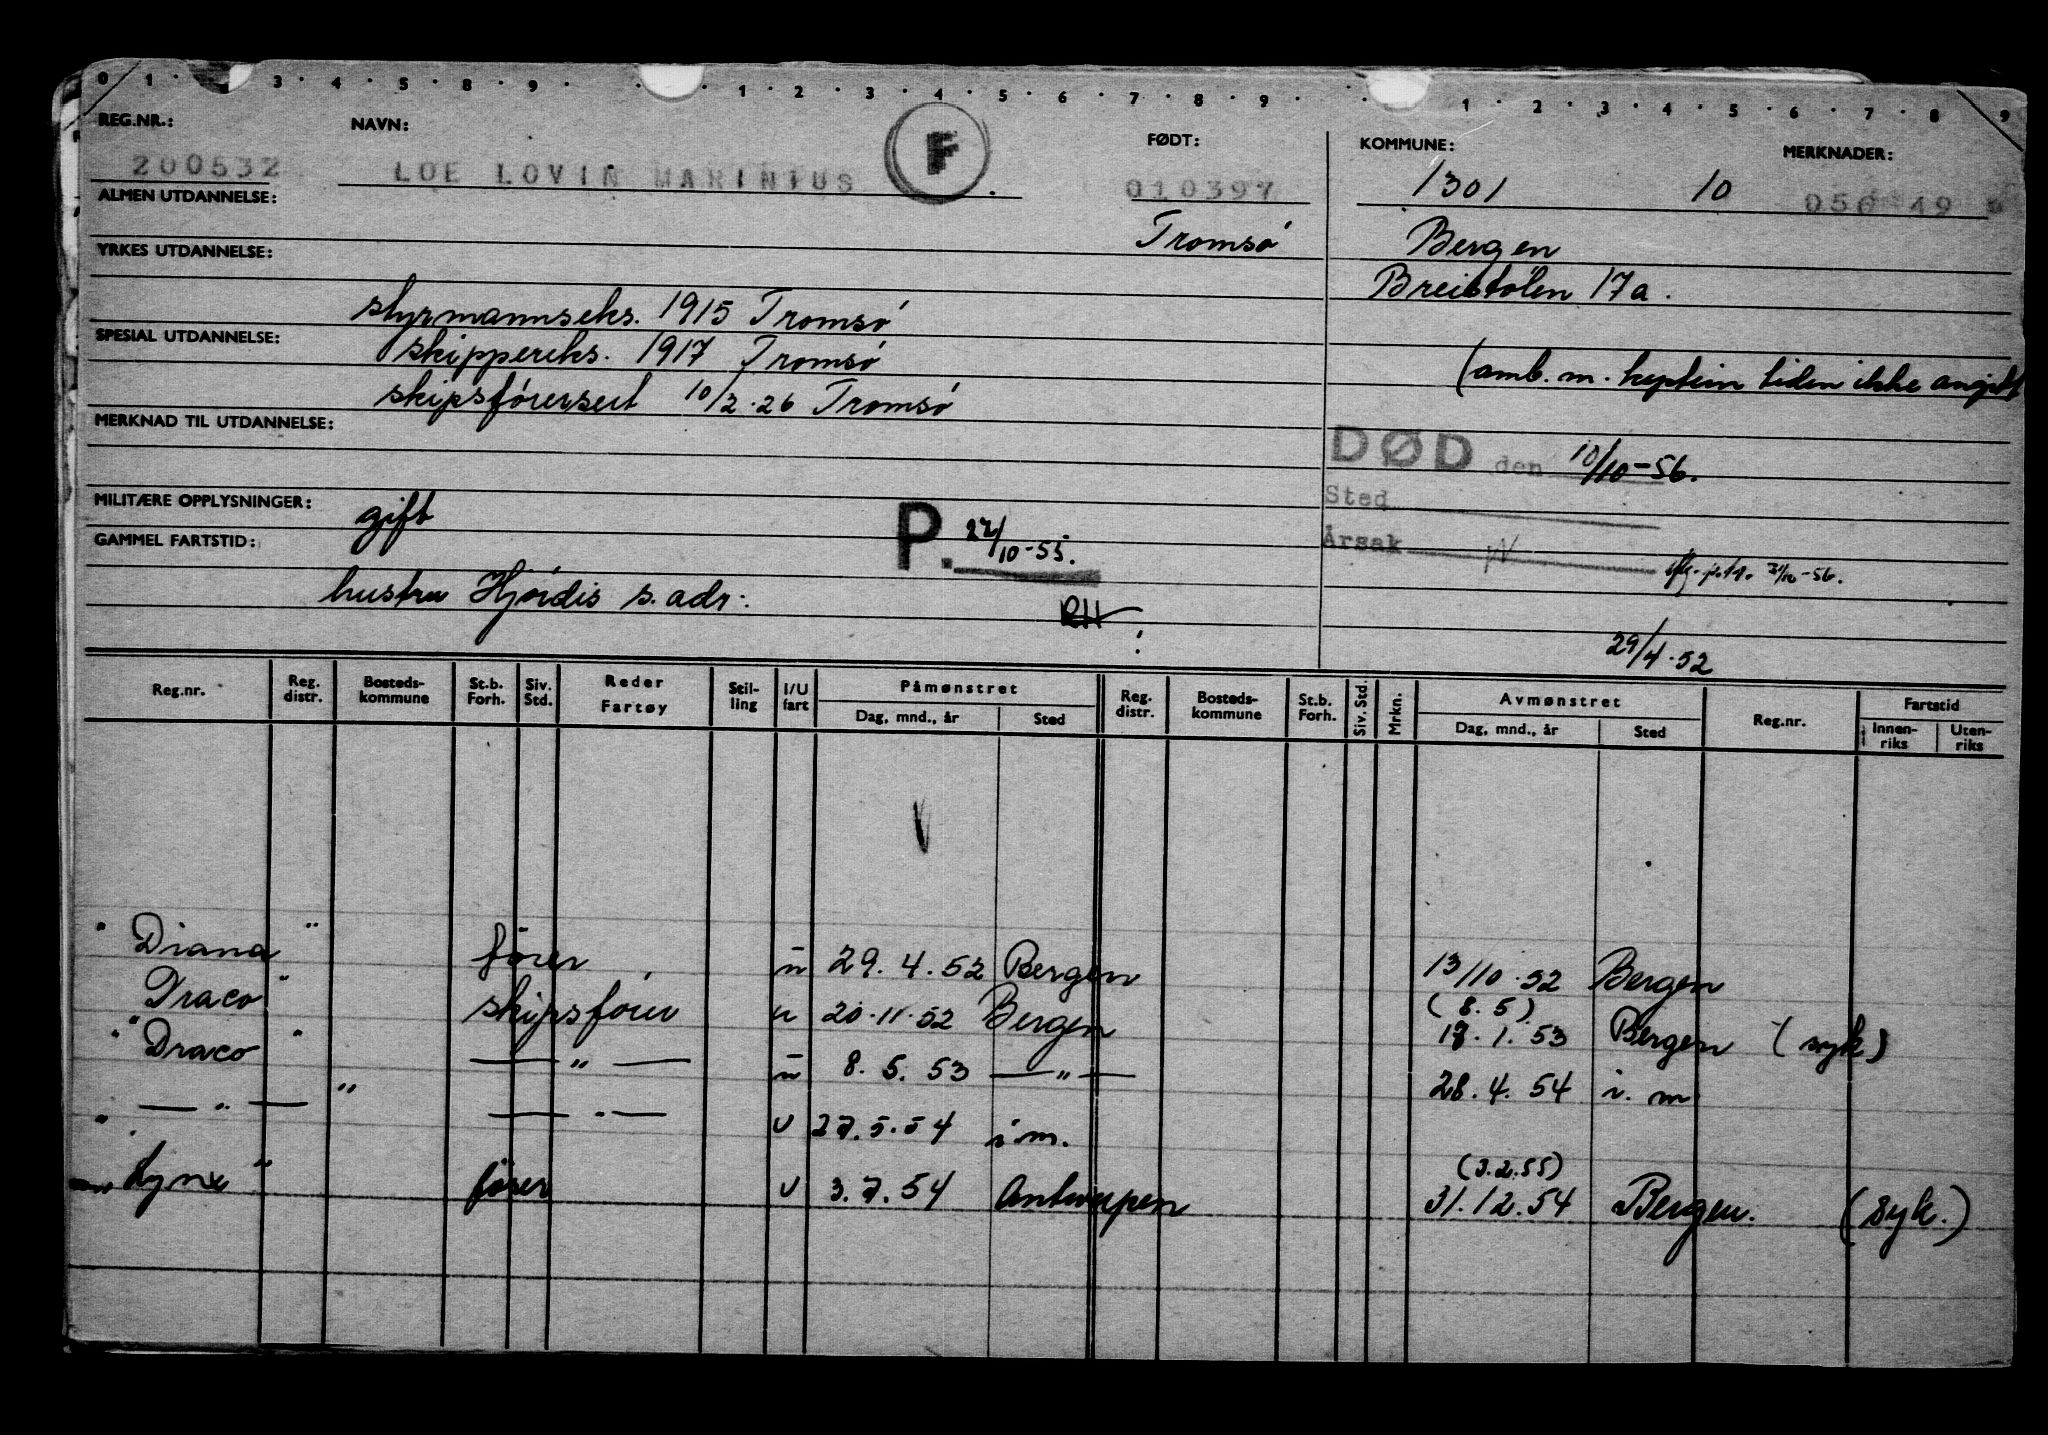 0 1 · 3 · 4 · 5 · 8 · 9 · · 1 · 2 · 3 · 4 · 5 · 6 · 7 · 8 · 9 · · 1 · 2 · 3 · 4 · 5 · 6 · 7 · 8 · 9
REG.NR.: NAVN: FØDT: KOMMUNE: MERKNADER:
200532 LOE LOVIN MARINIUS F 010397 1301 10 050 49
ALMEN UTDANNELSE: Tromsø Bergen
YRKES UTDANNELSE: Breistølen 17a.
styrmannseks. 1915 Tromsø
SPESIAL UTDANNELSE: skippereks. 1917 Tromsø (amb. m. kaptein tiden ikke angitt
skipsførersert 10/2.26 Tromsø
MERKNAD TIL UTDANNELSE: DØD den 10/10-56.
MILITÆRE OPPLYSNINGER: gift P. 27/10-55. Sted
GAMMEL FARTSTID: Årsak 31/10-56.
hustru Hjørdis s. adr: RH
29/4.52
Reg.nr. Reg. distr. Bosteds-kommune St.b. Forh. Siv. Std. Reder Fartøy Stil-ling I/U fart Påmønstret Dag, mnd., år Sted Reg. distr. Bosteds-kommune St.b. Forh. Siv. Std. Mrkn. Avmønstret Dag, mnd., år Sted Reg.nr. Fartstid Innen-riks Uten-riks
" Diana " fører u 29.4.52 Bergen 13/10.52 Bergen
Draco " skipsfører u 20.11.52 Bergen (8.5) 17.1.53 Bergen (syk)
" Draco " — " — u 8.5.53 — " — 28.4.54 i.m
— " — " — " — u 27.5.54 i m.
" Lynx " fører u 3.7.54 Antwerpen (3.2.55) 31.12.54 Bergen. (syk.)